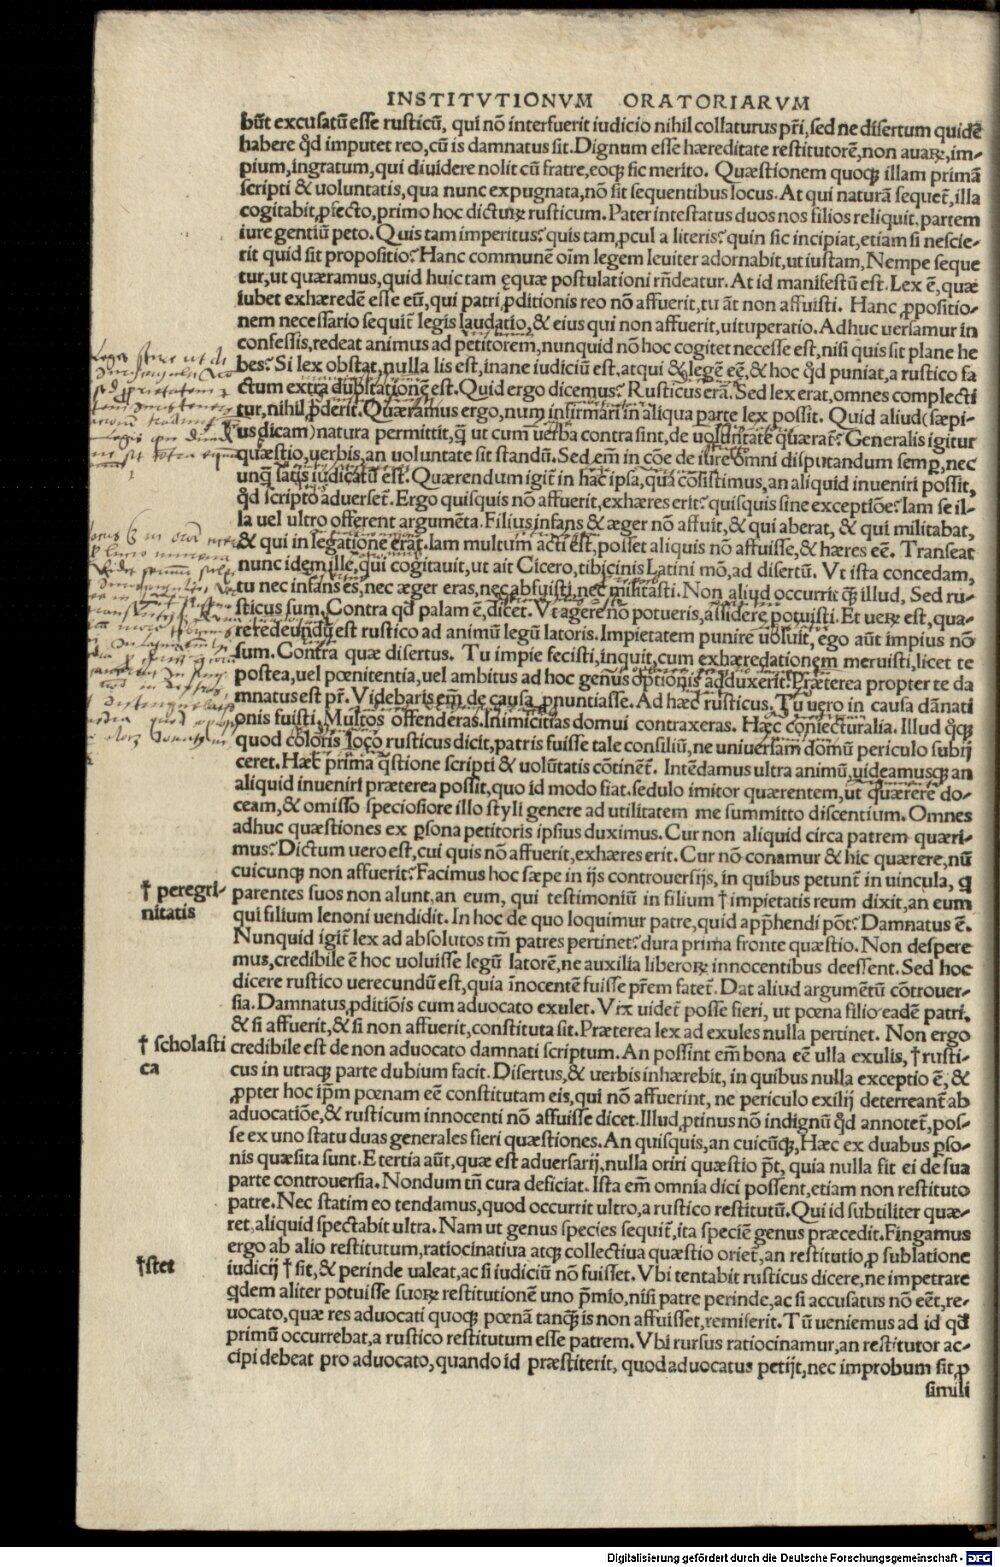 INSTITVTIONVM ORATORIARVM
bũt excusatũ esse rusticũ, qui nõ interfuerit iudicio nihil collaturus pr̃i, sed ne disertum quidẽ
habere qd̃ imputet reo, cũ is damnatus sit. Dignum esse hæreditate restitutorẽ, non auaꝝ, im-
pium, ingratum, qui diuidere nolit cũ fratre, eoqꝫ sic merito. Quæstionem quoqꝫ illam primã
scripti & uoluntatis, qua nunc expugnata, nõ sit sequentibus locus. At qui naturã sequet̃, illa
cogitabit, ꝓfecto, primo hoc dictuꝝ rusticum. Pater intestatus duos nos filios reliquit. partem
iure gentiũ peto. Quis tam imperitus? quis tam, ꝓcul a literis? quin sic incipiat, etiam si nescie-
rit quid sit propositio? Hanc communẽ oĩm legem leuiter adornabit, ut iustam, Nempe seque
tur, ut quæramus, quid huic tam ęquæ postulationi rñdeatur. At id manifestũ est. Lex ẽ, quæ
iubet exhæredẽ esse eũ, qui patri ꝓditionis reo nõ affuerit, tu ãt non affuisti. Hanc ꝓpositio-
nem necessario sequit̃ legis laudatio, & eius qui non affuerit, uituperatio. Adhuc uersamur in
confessis, redeat animus ad petitorem, nunquid nõ hoc cogitet necesse est, nisi quis sit plane he
bes? Si lex obstat, nulla lis est, inane iudiciũ est, atqui & legẽ eẽ, & hoc qd̃ puniat, a rustico fa
ctum extra dubitationẽ est. Quid ergo dicemus? Rusticus erã. Sed lex erat, omnes complecti
tur, nihil ꝓderit. Quæramus ergo, num infirmari in aliqua parte lex possit. Quid aliud (sæpi-
us dicam) natura permittit, q̃ ut cum uerba contra sint, de uoluntate quærat̃? Generalis igitur
quæstio, uerbis, an uoluntate sit standũ. Sed em̃ in cõe de iure omni disputandum semꝑ, nec
unq̃ satis iudicatũ est. Quærendum igit̃ in hac ipsa, qua cõsistimus, an aliquid inueniri possit,
qd̃ scripto aduerset̃. Ergo quisquis nõ affuerit, exhæres erit? quisquis sine exceptiõe? Iam se il-
la uel ultro offerent argumẽta. Filius infans & æger nõ affuit, & qui aberat, & qui militabat,
& qui in legatione erat. Iam multum acti est, posset aliquis nõ affuisse, & hæres eẽ. Transeat
nunc idem ille, qui cogitauit, ut ait Cicero, tibicinis Latini mõ, ad disertũ. Vt ista concedam,
tu nec infans es, nec æger eras, nec abfuisti, nec militasti. Non aliud occurrit q̃ illud, Sed ru-
sticus sum. Contra qd palam ẽ, dicet. Vt agere nõ potueris, assidere potuisti. Et ueꝝ est, qua-
re redeundũ est rustico ad animũ legũ latoris. Impietatem punire uoluit, ego aũt impius nõ
sum. Contra quæ disertus. Tu impie fecisti, inquit, cum exhæredationem meruisti, licet te
postea, uel pœnitentia, uel ambitus ad hoc genus optionis adduxerit. Præterea propter te da
mnatus est pr̃. Videbaris em̃ de causa ꝓnuntiasse. Ad hæc rusticus. Tu uero in causa dãnati
onis fuisti. Multos offenderas. Inimicitias domui contraxeras. Hæc coniecturalia. Illud qͦqꝫ
quod coloris loco rusticus dicit, patris fuisse tale consiliũ, ne uniuersam domũ periculo subij
ceret. Hæc prima q̃stione scripti & uolũtatis cõtinẽt̃. Intẽdamus ultra animũ, uideamusqꝫ an
aliquid inueniri præterea possit, quo id modo fiat. sedulo imitor quærentem, ut quærere do-
ceam, & omisso speciosiore illo styli genere ad utilitatem me summitto discentium. Omnes
adhuc quæstiones ex ꝑsona petitoris ipsius duximus. Cur non aliquid circa patrem quæri-
mus? Dictum uero est, cui quis nõ affuerit, exhæres erit. Cur nõ conamur & hic quærere, nũ
cuicunqꝫ non affuerit? Facimus hoc sæpe in ijs controuersijs, in quibus petunt̃ in uincula, q̃
† peregri-
nitatis
parentes suos non alunt, an eum, qui testimoniũ in filium † impietatis reum dixit, an eum
qui filium lenoni uendidit. In hoc de quo loquimur patre, quid app̃hendi põt? Damnatus ẽ.
Nunquid igit̃ lex ad absolutos tm̃ patres pertinet? dura prima fronte quæstio. Non despere
mus, credibile ẽ hoc uoluisse legũ latorẽ, ne auxilia liberoꝝ innocentibus deessent. Sed hoc
dicere rustico uerecundũ est, quia ĩnocentẽ fuisse pr̃em fatet̃. Dat aliud argumẽtũ cõtrouer-
sia. Damnatus ꝓditiõis cum aduocato exulet. Vix uidet̃ posse fieri, ut pœna filio eadẽ patri,
& si affuerit, & si non affuerit, constituta sit. Præterea lex ad exules nulla pertinet. Non ergo
† scholasti
ca
credibile est de non aduocato damnati scriptum. An possint em̃ bona eẽ ulla exulis, † rusti-
cus in utraqꝫ parte dubium facit. Disertus, & uerbis inhærebit, in quibus nulla exceptio ẽ, &
ꝓpter hoc ip̃m pœnam eẽ constitutam eis, qui nõ affuerint, ne periculo exilij deterreant̃ ab
aduocatiõe, & rusticum innocenti nõ affuisse dicet. Illud ꝓtinus nõ indignũ qd̃ annotet̃, pos-
se ex uno statu duas generales fieri quæstiones. An quisquis, an cuicũqꝫ, Hæc ex duabus ꝑso-
nis quæsita sunt. E tertia aũt, quæ est aduersarij, nulla oriri quæstio põt, quia nulla fit ei de sua
parte controuersia. Nondum tñ cura deficiat. Ista em̃ omnia dici possent, etiam non restituto
patre. Nec statim eo tendamus, quod occurrit ultro, a rustico restitutũ. Qui id subtiliter quæ-
ret, aliquid spectabit ultra. Nam ut genus species sequit̃, ita speciẽ genus præcedit. Fingamus
ergo ab alio restitutum, ratiocinatiua atqꝫ collectiua quæstio oriet̃, an restitutio ꝓ sublatione
†stet
iudicij † sit, & perinde ualeat, ac si iudiciũ nõ fuisset. Vbi tentabit rusticus dicere, ne impetrare
q̃dem aliter potuisse suoꝝ restitutionẽ uno p̃mio, nisi patre perinde, ac si accusatus nõ eẽt, re-
uocato, quæ res aduocati quoqꝫ pœnã tanq̃ is non affuisset, remiserit. Tũ ueniemus ad id qd̃
primũ occurrebat, a rustico restitutum esse patrem. Vbi rursus ratiocinamur, an restitutor ac-
cipi debeat pro aduocato, quando id præstiterit, quod aduocatus petijt, nec improbum sit, ꝓ
simili
Digitalisierung gefördert durch die Deutsche Forschungsgemeinschaft - DFG